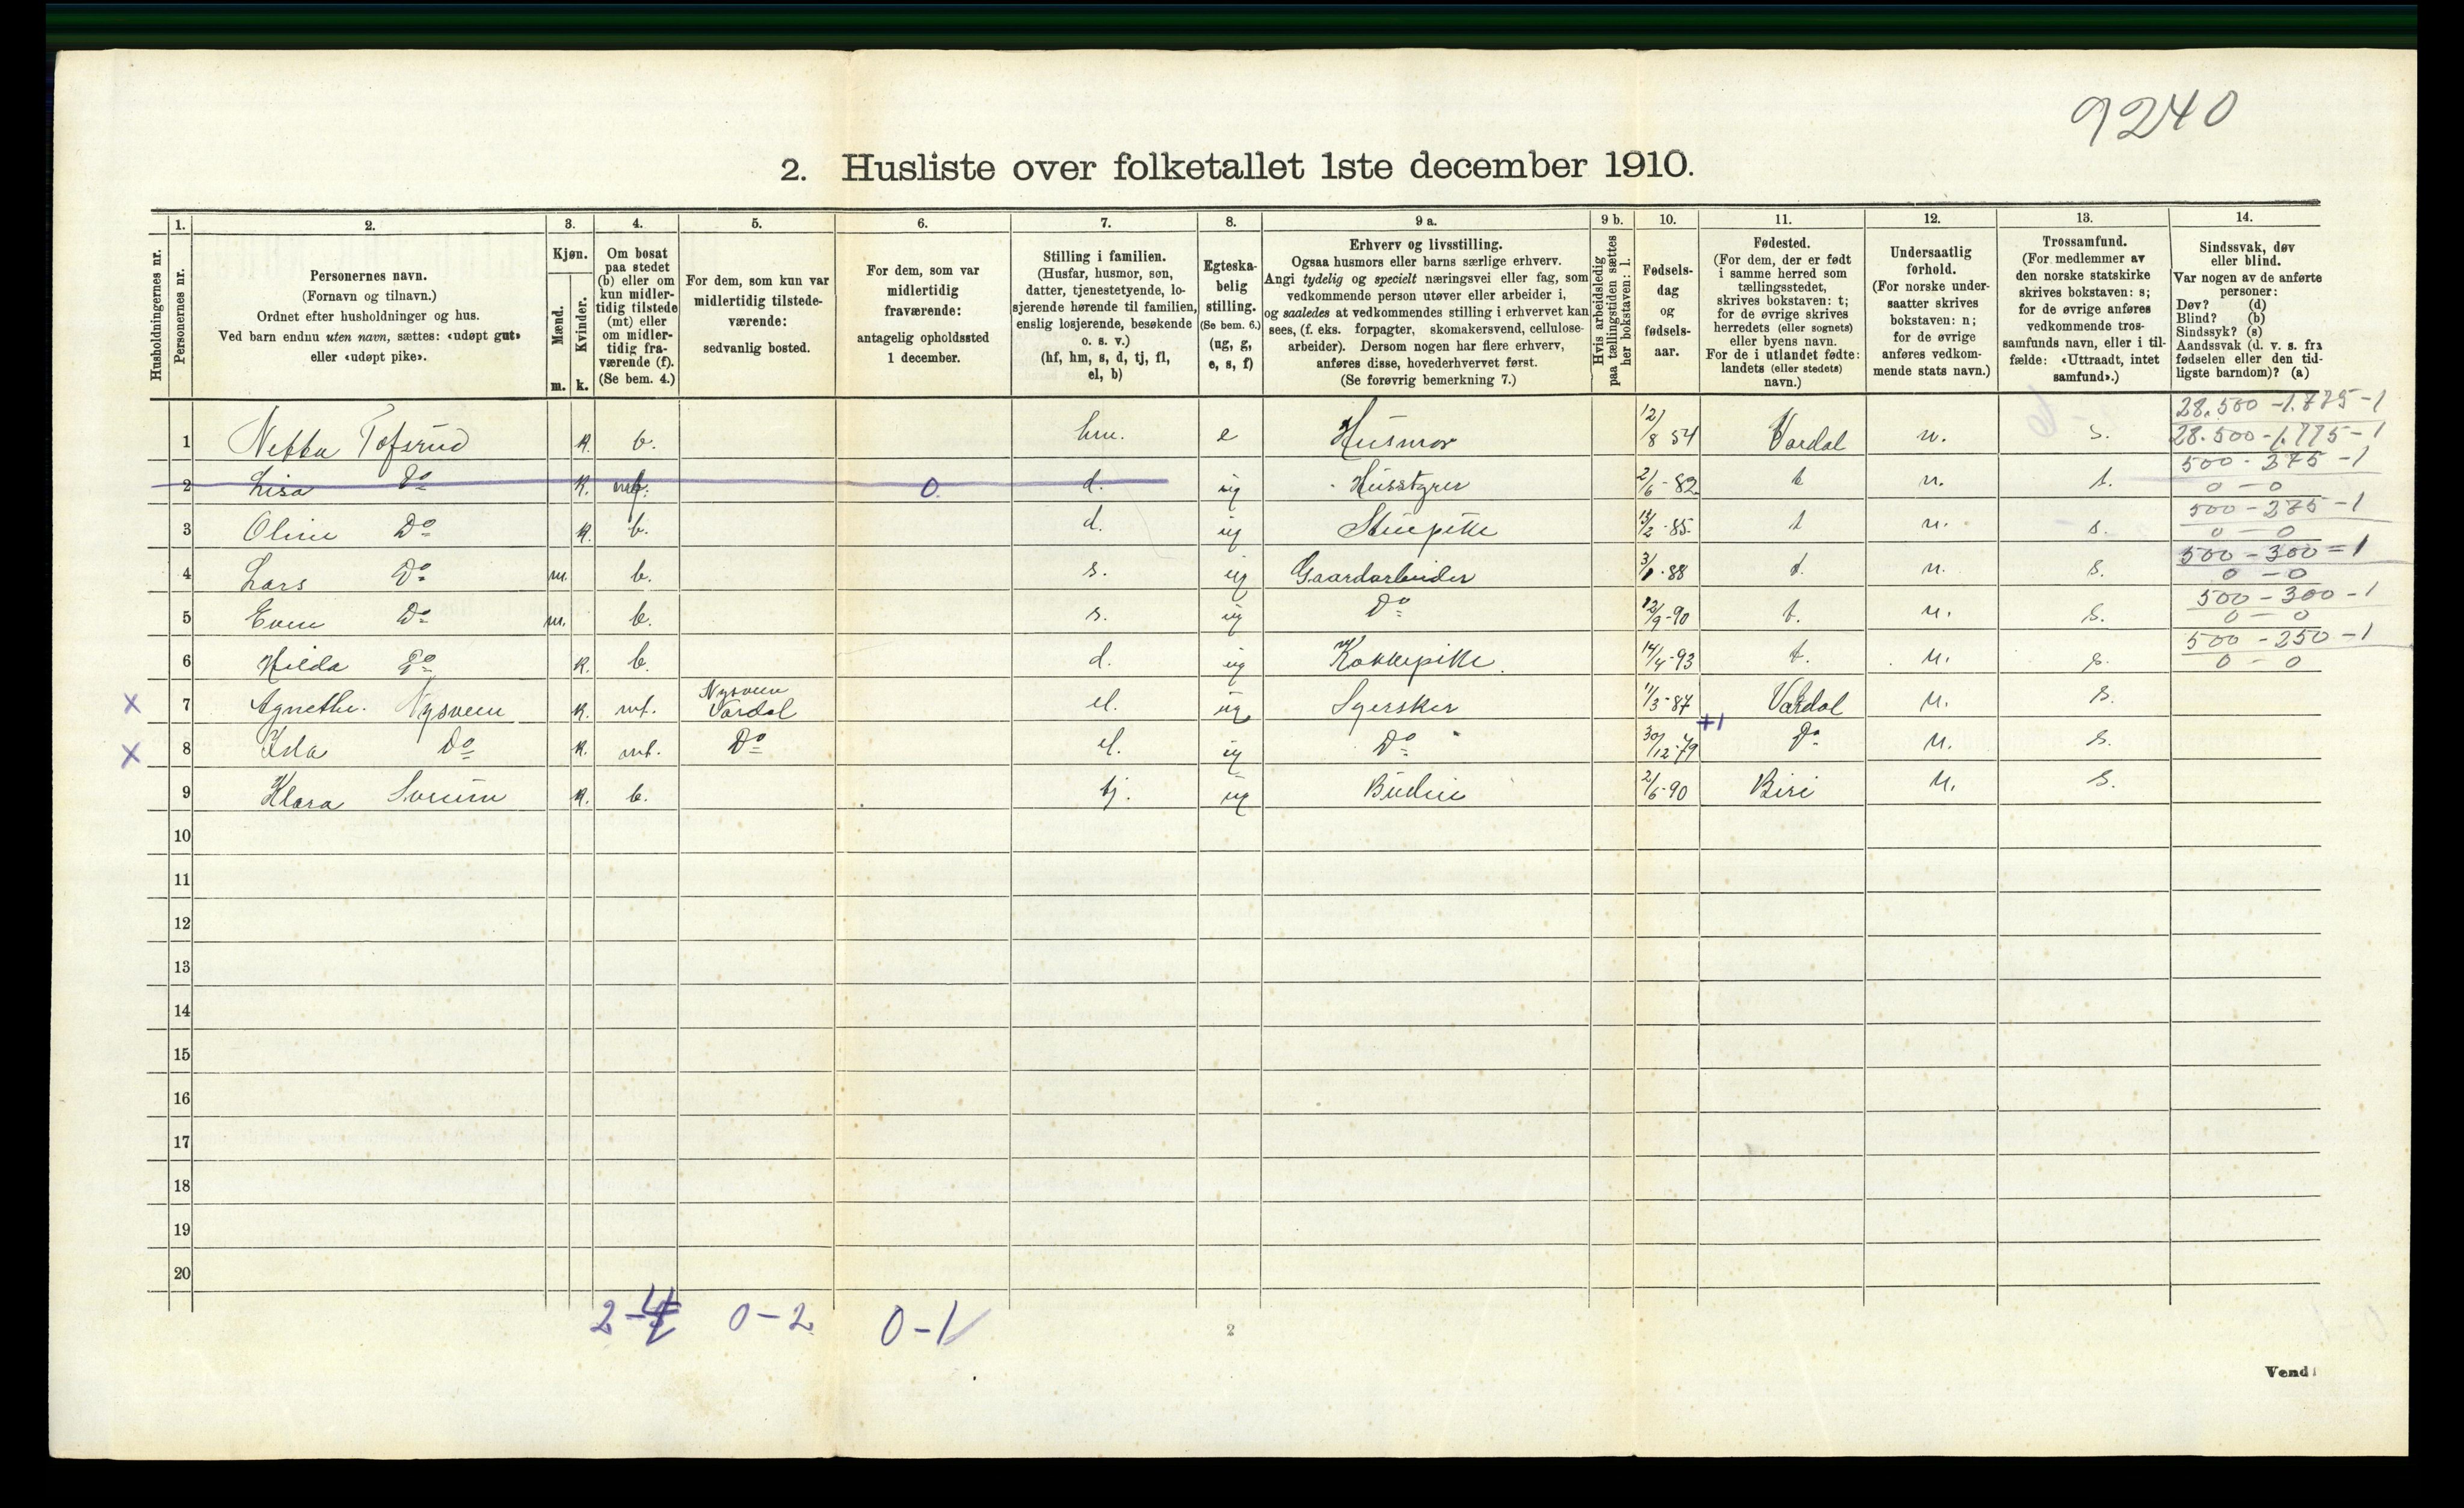 9240
2. Husliste over folketallet 1ste december 1910.
1. 2. 3. 4. 5. 6. 7. 8. 9 a. 9 b. 10. 11. 12. 13. 14.
Husholdningernes nr.
Personernes nr.
Personernes navn.
(Fornavn og tilnavn.)
Ordnet efter husholdninger og hus.
Ved barn endnu uten navn, sættes: «udøpt gut»
eller «udøpt pike».
Kjøn.
Mænd.
Kvinder.
m. k.
Om bosat
paa stedet
(b) eller om
kun midler-
tidig tilstede
(mt) eller
om midler-
tidig fra-
værende (f).
(Se bem. 4.)
For dem, som kun var
midlertidig tilstede-
værende:
sedvanlig bosted.
For dem, som var
midlertidig
fraværende:
antagelig opholdssted
1 december.
Stilling i familien.
(Husfar, husmor, søn,
datter, tjenestetyende, lo-
sjerende hørende til familien,
enslig losjerende, besøkende
o. s. v.)
(hf, hm, s, d, tj, fl,
el, b)
Egteska-
belig
stilling.
(Se bem. 6.)
(ug, g,
e, s, f)
Erhverv og livsstilling.
Ogsaa husmors eller barns særlige erhverv.
Angi tydelig og specielt næringsvei eller fag, som
vedkommende person utøver eller arbeider i,
og saaledes at vedkommendes stilling i erhvervet kan
sees, (f. eks. forpagter, skomakersvend, cellulose-
arbeider). Dersom nogen har flere erhverv,
anføres disse, hovederhvervet først.
(Se forøvrig bemerkning 7.)
Hvis arbeidsledig
paa tællingstiden sættes
her bokstaven: l.
Fødsels-
dag
og
fødsels-
aar.
Fødested.
(For dem, der er født
i samme herred som
tællingsstedet,
skrives bokstaven: t;
for de øvrige skrives
herredets (eller sognets)
eller byens navn.
For de i utlandet fødte:
landets (eller stedets)
navn.)
Undersaatlig
forhold.
(For norske under-
saatter skrives
bokstaven: n;
for de øvrige
anføres vedkom-
mende stats navn.)
Trossamfund.
(For medlemmer av
den norske statskirke
skrives bokstaven: s;
for de øvrige anføres
vedkommende tros-
samfunds navn, eller i til-
fælde: «Uttraadt, intet
samfund».)
Sindssvak, døv
eller blind.
Var nogen av de anførte
personer:
Døv? (d)
Blind? (b)
Sindssyk? (s)
Aandssvak (d. v. s. fra
fødselen eller den tid-
ligste barndom)? (a)
28.500 - 1.775 - 1
1 Tofsrud k. b. hm. e Husmor 12/8 54 Vardal n. s. 28.500 - 1.775 - 1
500 - 375 - 1
2 Lisa Do k. 0. d. ug Husstyrer 2/6 - 82 t n. s. 0 - 0
500 - 275 - 1
3 Oline Do k. b. d. ug Stuepike 13/2 - 85 t n. s. 0 - 0
500 - 300 = 1
4 Lars Do m. b. s. ug Gaardarbeider - 88 t. n. s. 0 - 0
500 - 300 - 1
5 Even Do m. b. s. ug Do 12/9 - 90 t. n. s. 0 - 0
500 - 250 - 1
6 Hilda Do k. b. d. ug Kokkepike. 14/4 - 93 t. n. s. 0 - 0
Nysveen
x 7 Agnethe Nysveen k. mt. Vardal el. ug Syerske 11/3 - 87 Vardal n. s.
+1
x 8 Do k. mt. Do el. ug Do 30/12 - 79 Do n. s.
9 Klara k. b. tj. ug Budeie 2/6 - 90 Biri n. s.
10
11
12
13
14
15
16
17
18
19
20
2 - 4 0 - 2 0 - 1
2
Vend